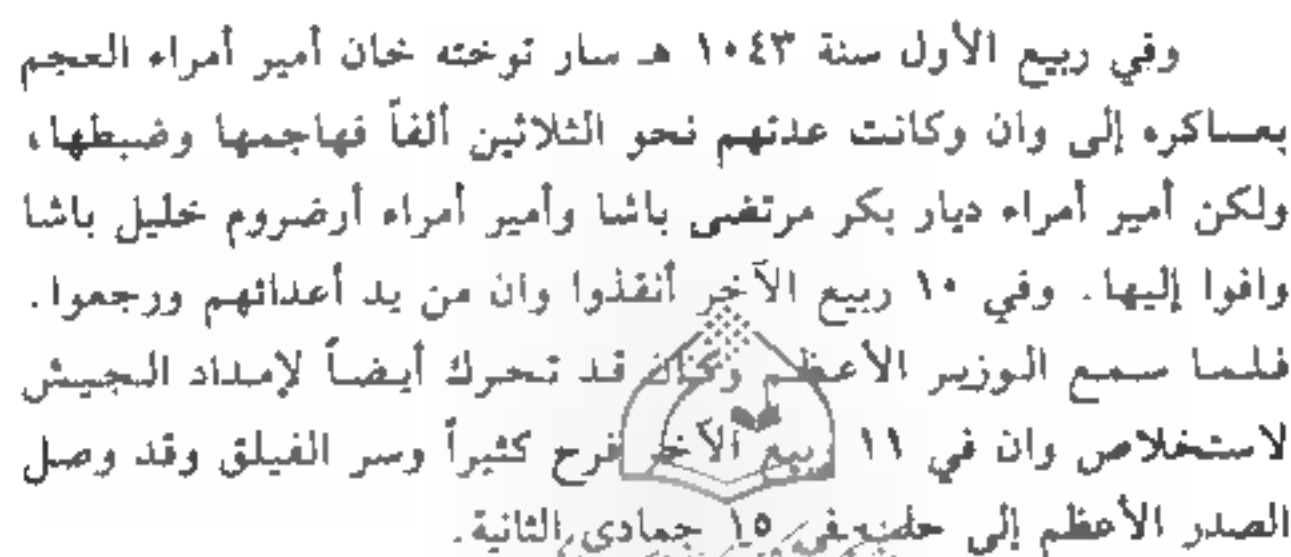 وفي ربيع الأول سنة ١٠٤٣ هـ سار توخته خان أمير أمراء العجم
بعساكره إلى وان وكانت عدتهم نحو الثلاثين ألفاً فهاجمها وضبطها،
ولكن أمير أمراء ديار بكر مرتضى باشا وأمير أمراء أرضروم خليل باشا
وافوا إليها. وفي ١٠ ربيع الآخر أنقذوا وان من يد أعدائهم ورجعوا.
فلما سمع الوزير الأعظم وكان قد تحرك أيضاً لإمداد الجيش
لاستخلاص وان في ١١ ربيع الآخر فرح كثيراً وسر الفيلق وقد وصل
الصدر الأعظم إلى في ١٥ جمادى الثانية.